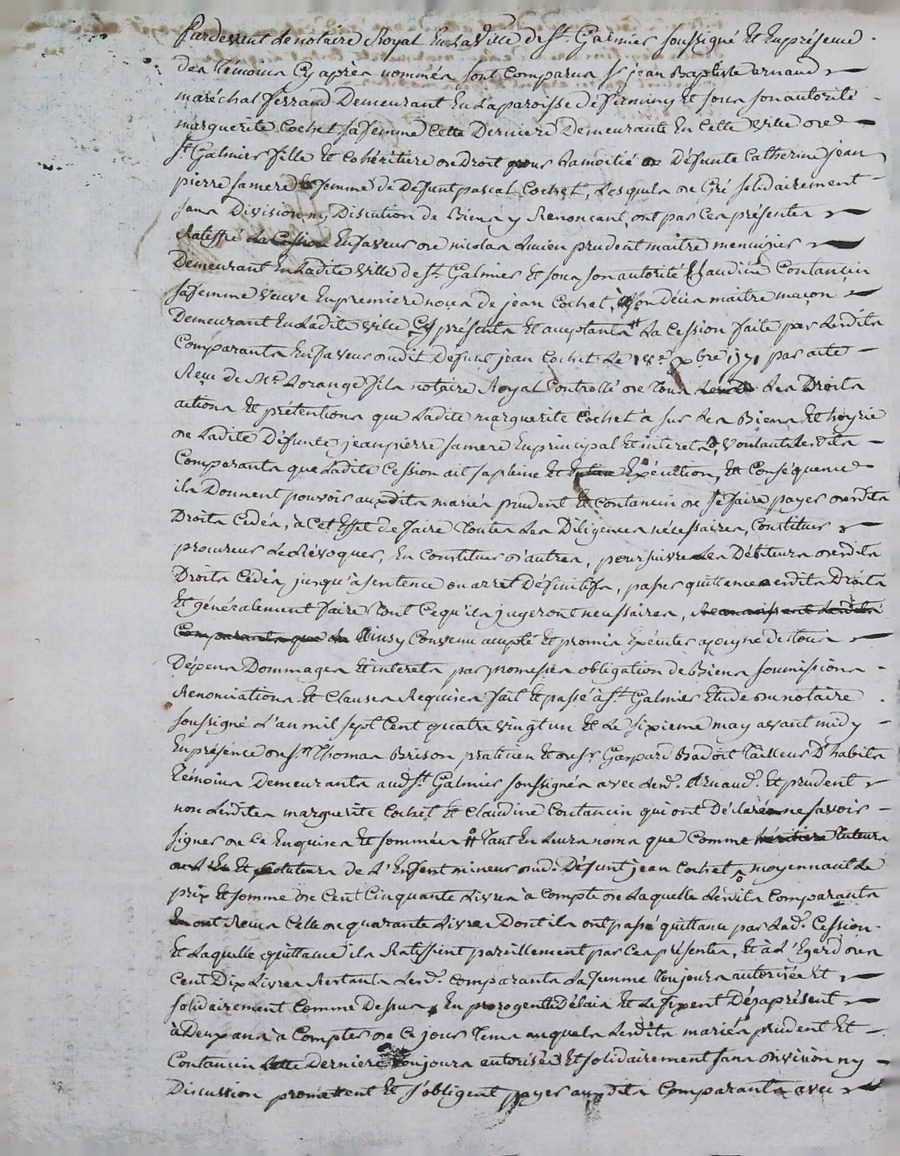 Pardevant Le notaire Royal En La Ville de St. Galmier soussigné Et En présence
des témoins Cy après nommés sont Comparus Sr jean Baptiste arnaud
maréchal ferrand Demeurant En La paroisse de firminy Et sous son autorité
marguerite Cochet sa femme Cette Derniere Demeurante En Cette ville de
St. Galmier fille Et Cohéritiere de Droit pour La moitié de Défunte Catherine jean
pierre sa mere femme de Defunt pascal Cochet, Lesquels de Gré solidairement
sans Division ny Discution de Biens y Renoncant, ont par Ces présentes
Ratiffié La Cession En faveur de nicolas Lucien prudent maitre menuizier
Demeurant En Ladite ville de St. Galmier Et sous son autorité Claudine Contancin
sa femme veuve En premiere noces de jean Cochet, maitre macon
Demeurant En Ladite ville Cy présents Et acceptants La Cession faite par Lesdits
Comparants En faveur dudit Defunt jean Cochet Le 18e Xbre 1771 par acte
Reçu de Me Lorange fils notaire Royal Controllé de tous Les Droits
actions Et prétentions que Ladite marguerite Cochet a sur Les Biens Et hoyrie
de Ladite Défunte jeanpierre sa mere En principal Et interets, voulants Lesdits
Comparants que Ladite Cession ait sa pleine Et Entiere Exécution, En Conséquence
ils Donnent pouvoir auxdits mariés prudent et Contancin de se faire payer desdits
Droits Cédés, à Cet Effet de faire toutes Les Diligences nécessaires, Constituer
procureur Le Révoquer, En Constituer d'autres, poursuivre Les Débiteurs desdits
Droits Cédés jusqu'a sentence ou arret Définitifs, passer quittance desdits Droits
Et généralement faire tout Ce qu'ils jugeront necessaires, Reconnaissant Lesdits
Comparants que Ainsy Convenu accepté Et promis Exécuter a peyne de tous
Dépens Dommages Et interets par promesses obligation de Biens soumissions
Renonciations Et Clauses Requises fait Et passé à St. Galmier Etude du notaire
soussigné L'an mil sept Cent quatre vingt un Et Le sixieme may avant midy
En présence de Sr Thomas Brison praticien Et de Sr Gaspard Badoit Tailleur D'habits
témoins Demeurants audit St. Galmier soussignés avec Lesd. Arnaud. Et prudent
non Lesdites marguerite Cochet Et Claudine Contancin qui ont Déclarées ne savoir
signer de Ce Enquises Et sommées tant En Leurs noms que Comme héritiere tuteurs
Et de L'Enfant mineur dud. Défunt jean Cochet, moyennant Le
prix Et somme de Cent Cinquante Livres à Compte de Laquelle Lesdits Comparants
En ont Reçus Celle de quarante Livres Dont ils ont passé quittance par Lad. Cession
Et Laquelle quittance ils Ratiffient pareillement par Ces présentes, Et à L'Egard des
Cent Dix Livres Restants Lesd. Comparants La femme toujours autorisée Et
solidairement Comme Dessus, En prorogent Le Délais Et Le fixent Dèsaprésent
à Deux ans à Compter de Ce jour tems auquels Lesdits mariés prudent Et
Contancin Cette Derniere toujours autorisée Et solidairement sans Division ny
Discussion promettent Et s'obligent payer auxdits Comparants avec